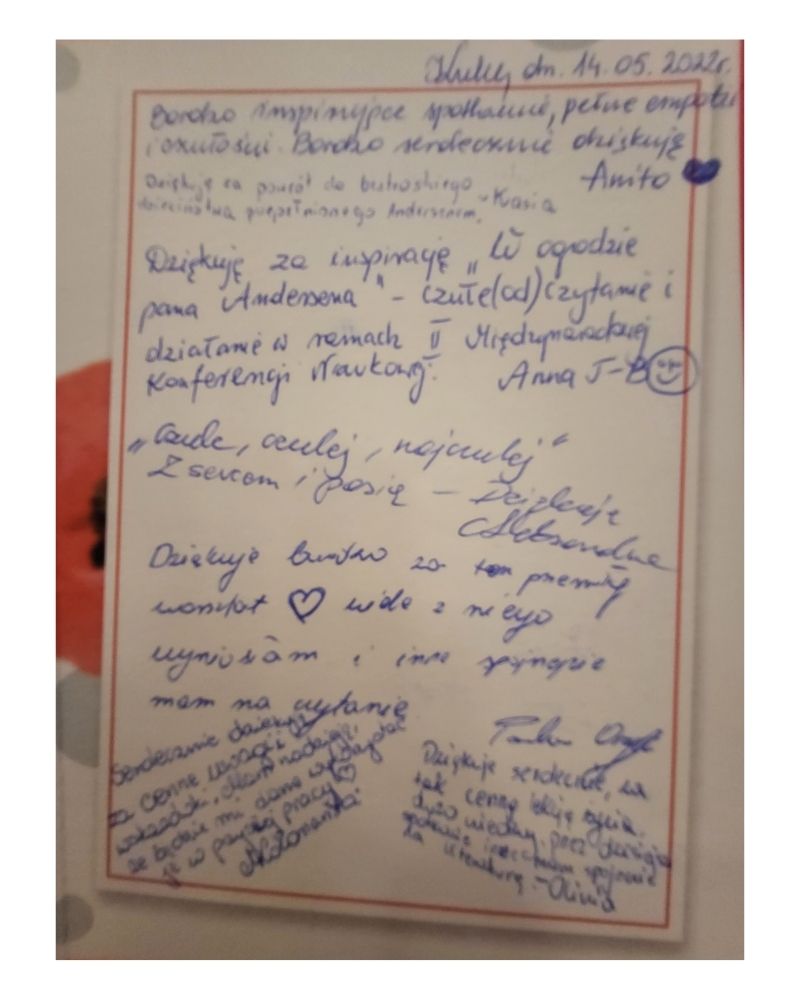 dn. 14.05.2022r.
Bardzo inspirujące spotkanie, pełne empatii
i czułości. Bardzo serdecznie dziękuję
Anita
Dziękuję za powrót do beztroskiego
dzieciństwa przepełnionego Andersenem. - Kasia
Dziękuję za inspirację „W ogrodzie
pana Andersena" - czułe(od)czytanie i
działanie w ramach II Międzynarodowej
Konferencji Naukowej. Anna J-B
„Czule, czulej, najczulej"
Z sercem i pasją - Dziękuję
Aleksandra
Dziękuje bardzo za ten przemiły
warsztat ♡ wiele z niego
wyniosłam i inne spojrzenie
mam na czytanie
Serdecznie dziękuję
za cenne uwagi i
wskazówki. Mam nadzieję,
że będzie mi dane wykorzystać
je w przyszłej pracy ♡
Dziękuje serdecznie, za
tak cenną lekcję życia.
dużo wiedzy, przez dzisiejsze
spotkanie spojrzenie
na literaturę. - Oliwia